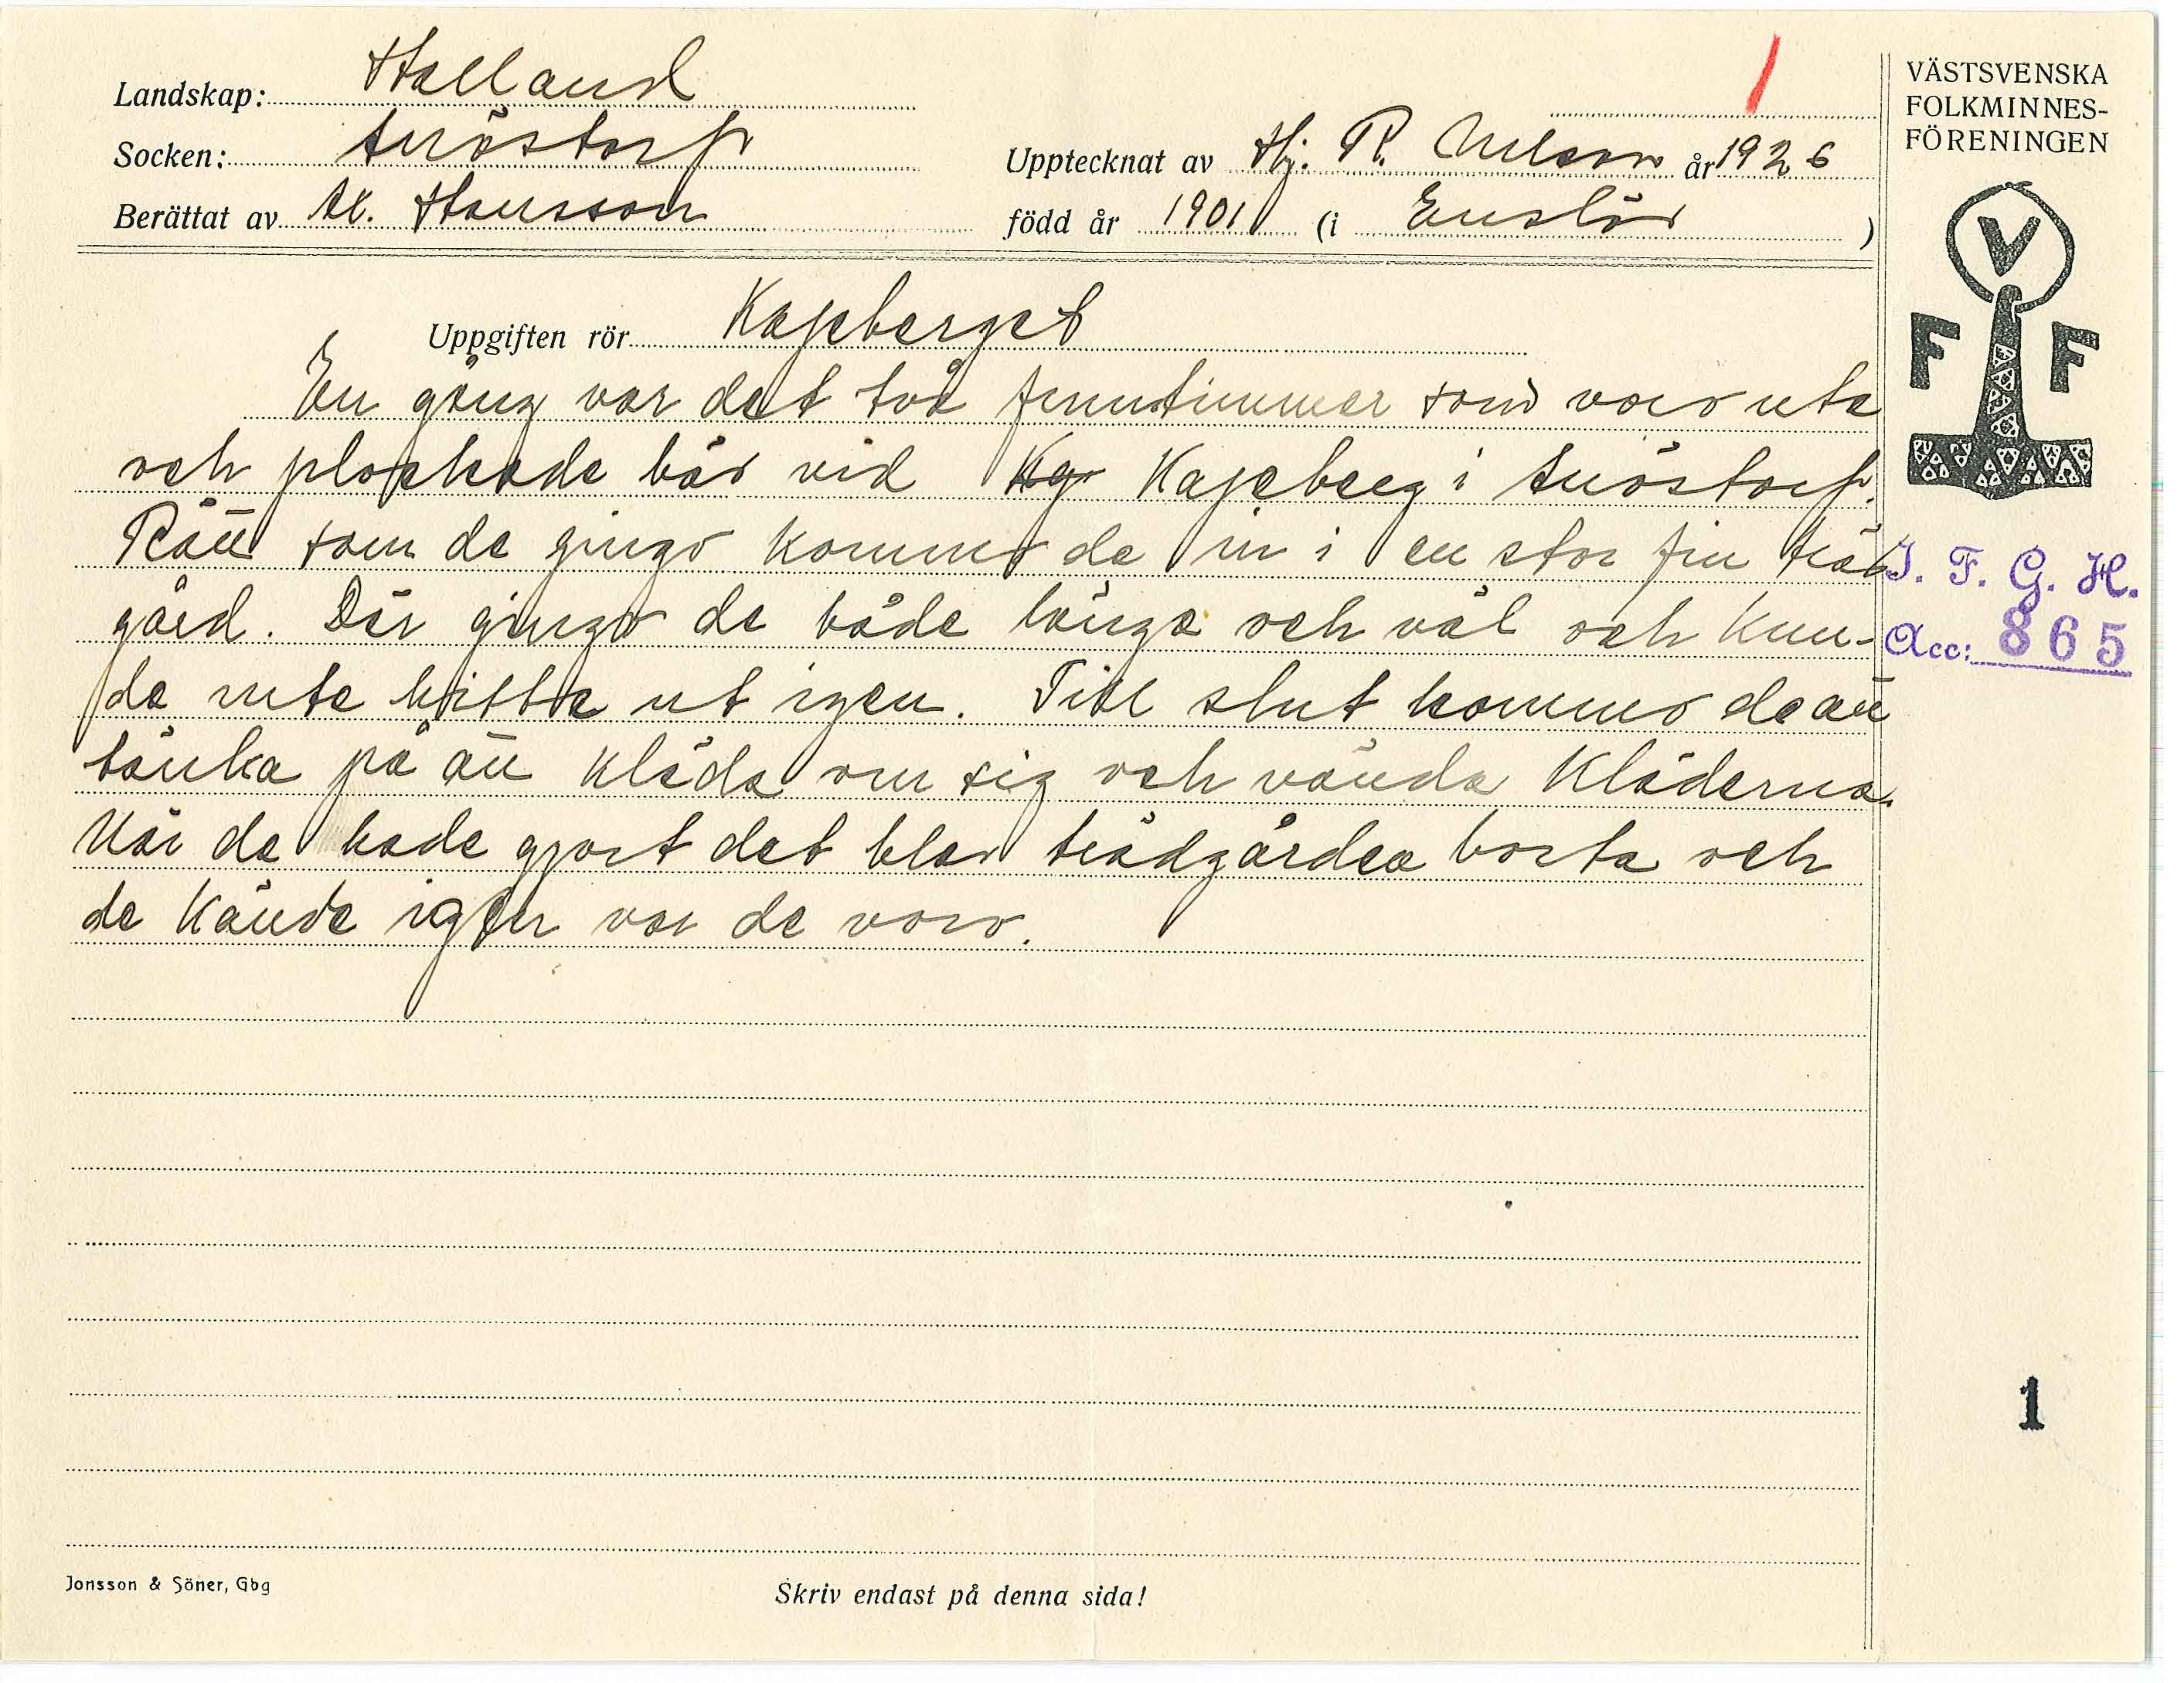 Landskap: Halland
Socken: Snöstorp
Berättat av A. Hansson
Upptecknat av Hj. P. Nilsson år 1926
född år 1901 (i Enslöv)
VÄSTSVENSKA
FOLKMINNES-
FÖRENINGEN
V
F F
Uppgiften rör Kajeberget
En gång var det två fruntimmer som voro ute
och plockade bär vid Kaj Kajeberg i Snöstorp.
Rätt som de gingo kommo de in i en stor fin träd
gård. Där gingo de både länge och väl och kun-
de inte hitta ut igen. Till slut kommo de att
tänka på att kläda om sig och vända kläderna.
När de hade gjort det blev trädgården borta och
de kände igen var de voro.
I. F. G. H.
Acc: 865
1
Jonsson & Söner, Gbg
Skriv endast på denna sida!